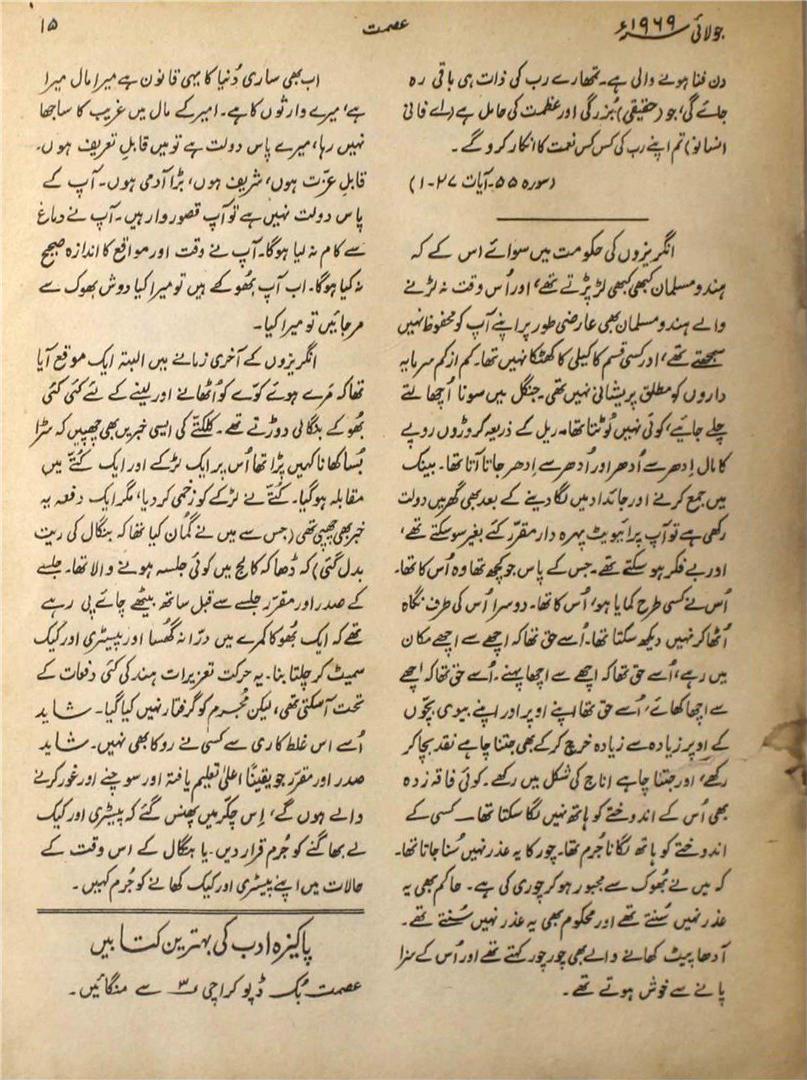 جولائی ۱۹۶۹ء
عصمت
۱۵
دن فنا ہونے والی ہے۔ تمھارے رب کی ذات ہی باقی رہ
جائے گی، جو (حقیقی) بُزرگی اور عظمت کی حامل ہے (اے فانی
انسانو) تم اپنے رب کی کس کس نعمت کا انکار کرو گے۔
(سورہ ۵۵۔ آیات ۲۷-۱)
انگریزوں کی حکومت میں سوائے اس کے کہ
ہندو مسلمان کبھی کبھی لڑ پڑتے تھے، اور اُس وقت نہ لڑنے
والے ہندو مسلمان بھی عارضی طور پر اپنے آپ کو محفوظ نہیں
سمجھتے تھے، اور کسی قسم کا کیلی کا کھٹکا نہیں تھا۔ کم از کم سرمایہ
داروں کو مطلق پریشانی نہیں تھی۔ جنگل میں سونا اُچھالتے
چلے جائیے، کوئی نہیں لُوٹتا تھا۔ ریل کے ذریعہ کروڑوں روپے
کا مال اِدھر سے اُدھر اور اُدھر سے اِدھر جاتا آتا تھا۔ بینک
میں جمع کرنے اور جائداد میں لگا دینے کے بعد بھی گھر میں دولت
رکھی ہے تو آپ پرائیویٹ پہرہ دار مقرّر کئے بغیر سو سکتے تھے،
اور بے فکر ہو سکتے تھے۔ جس کے پاس جو کچھ تھا وہ اُس کا تھا۔
اُس نے کسی طرح کمایا ہو، اُس کا تھا۔ دوسرا اُس کی طرف نگاہ
اُٹھا کر نہیں دیکھ سکتا تھا۔ اُسے حق تھا کہ اچھے سے اچھے مکان
میں رہے، اُسے حق تھا کہ اچھے سے اچھا پہنے۔ اُسے حق تھا کہ اچھے
سے اچھا کھائے، اُسے حق تھا اپنے اوپر اور اپنے بیوی بچّوں
کے اوپر زیادہ سے زیادہ خرچ کر کے بھی جتنا چاہے نقد بچا کر
رکھے، اور جتنا چاہے اناج کی شکل میں رکھے۔ کوئی فاقہ زدہ
بھی اُس کے اندوختے کو ہاتھ نہیں لگا سکتا تھا۔ کسی کے
اندوختے کو ہاتھ لگانا جُرم تھا۔ چور کا یہ عذر نہیں سُنا جاتا تھا۔
کہ میں نے بھُوک سے مجبور ہو کر چوری کی ہے۔ حاکم بھی یہ
عذر نہیں سُنتے تھے اور محکوم بھی یہ عذر نہیں سُنتے تھے۔
آدھا پیٹ کھانے والے بھی چور چور کہتے تھے اور اُس کے سزا
پانے سے خوش ہوتے تھے۔
اب بھی ساری دُنیا کا یہی قانون ہے میرا مال میرا
ہے، میرے وارثوں کا ہے۔ امیر کے مال میں غریب کا ساجھا
نہیں رہا، میرے پاس دولت ہے تو میں قابلِ تعریف ہوں۔
قابلِ عزّت ہوں، شریف ہوں، بڑا آدمی ہوں۔ آپ کے
پاس دولت نہیں ہے تو آپ قصور وار ہیں۔ آپ نے دماغ
سے کام نہ لیا ہوگا۔ آپ نے وقت اور مواقع کا اندازہ صحیح
نہ کیا ہوگا۔ اب آپ بھُوکے ہیں تو میرا کیا دوش بھوک سے
مر جائیں تو میرا کیا۔
انگریزوں کے آخری زمانے میں البتہ ایک موقع آیا
تھا کہ مَرے ہوئے کوّے کو اُٹھانے اور لینے کے لئے کئی کئی
بھُوکے بنگالی دوڑتے تھے۔ کلکتّے کی ایسی خبریں بھی چھپیں کہ سڑا
بُسا کھانا کہیں پڑا تھا اُس پر ایک لڑکے اور ایک کُتّے میں
مقابلہ ہو گیا۔ کُتّے نے لڑکے کو زخمی کر دیا، مگر ایک دفعہ یہ
خبر بھی چھپی تھی (جس سے میں نے گمُان کیا تھا کہ بنگال کی ریت
بدل گئی) کہ ڈھاکہ کالج میں کوئی جلسہ ہونے والا تھا۔ جلسے
کے صدر اور مقرّر جلسے سے قبل ساتھ بیٹھے چائے پی رہے
تھے کہ ایک بھُوکا کمرے میں درّانہ گھُسا اور پیسٹری اور کیک
سمیٹ کر چلتا بنا۔ یہ حرکت تعزیرات ہند کی کئی دفعات کے
تحت آسکتی تھی، لیکن مُجرم کو گرفتار نہیں کیا گیا۔ شاید
اُسے اس غلط کاری سے کسی نے روکا بھی نہیں۔ شاید
صدر اور مقرّر جو یقینًا اعلیٰ تعلیم یافتہ اور سوچنے اور غور کرنے
والے ہوں گے، اِس چکّر میں پھنس گئے کہ پیسٹری اور کیک
لے بھاگنے کو جُرم قرار دیں۔ یا بنگال کے اس وقت کے
حالات میں اپنے پیسٹری اور کیک کھانے کو جُرم کہیں۔
پاکیزہ ادب کی بہترین کتابیں
عصمت بُک ڈپو کراچی ۳ سے منگائیں۔